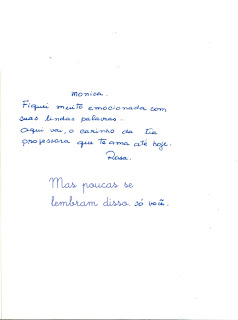 Monica.
Fiquei muito emocionada com
suas lindas palavras.
Aqui vai, o carinho da tia
professora que te ama até hoje.
Rosa.
Mas poucas se
lembram disso. só você.